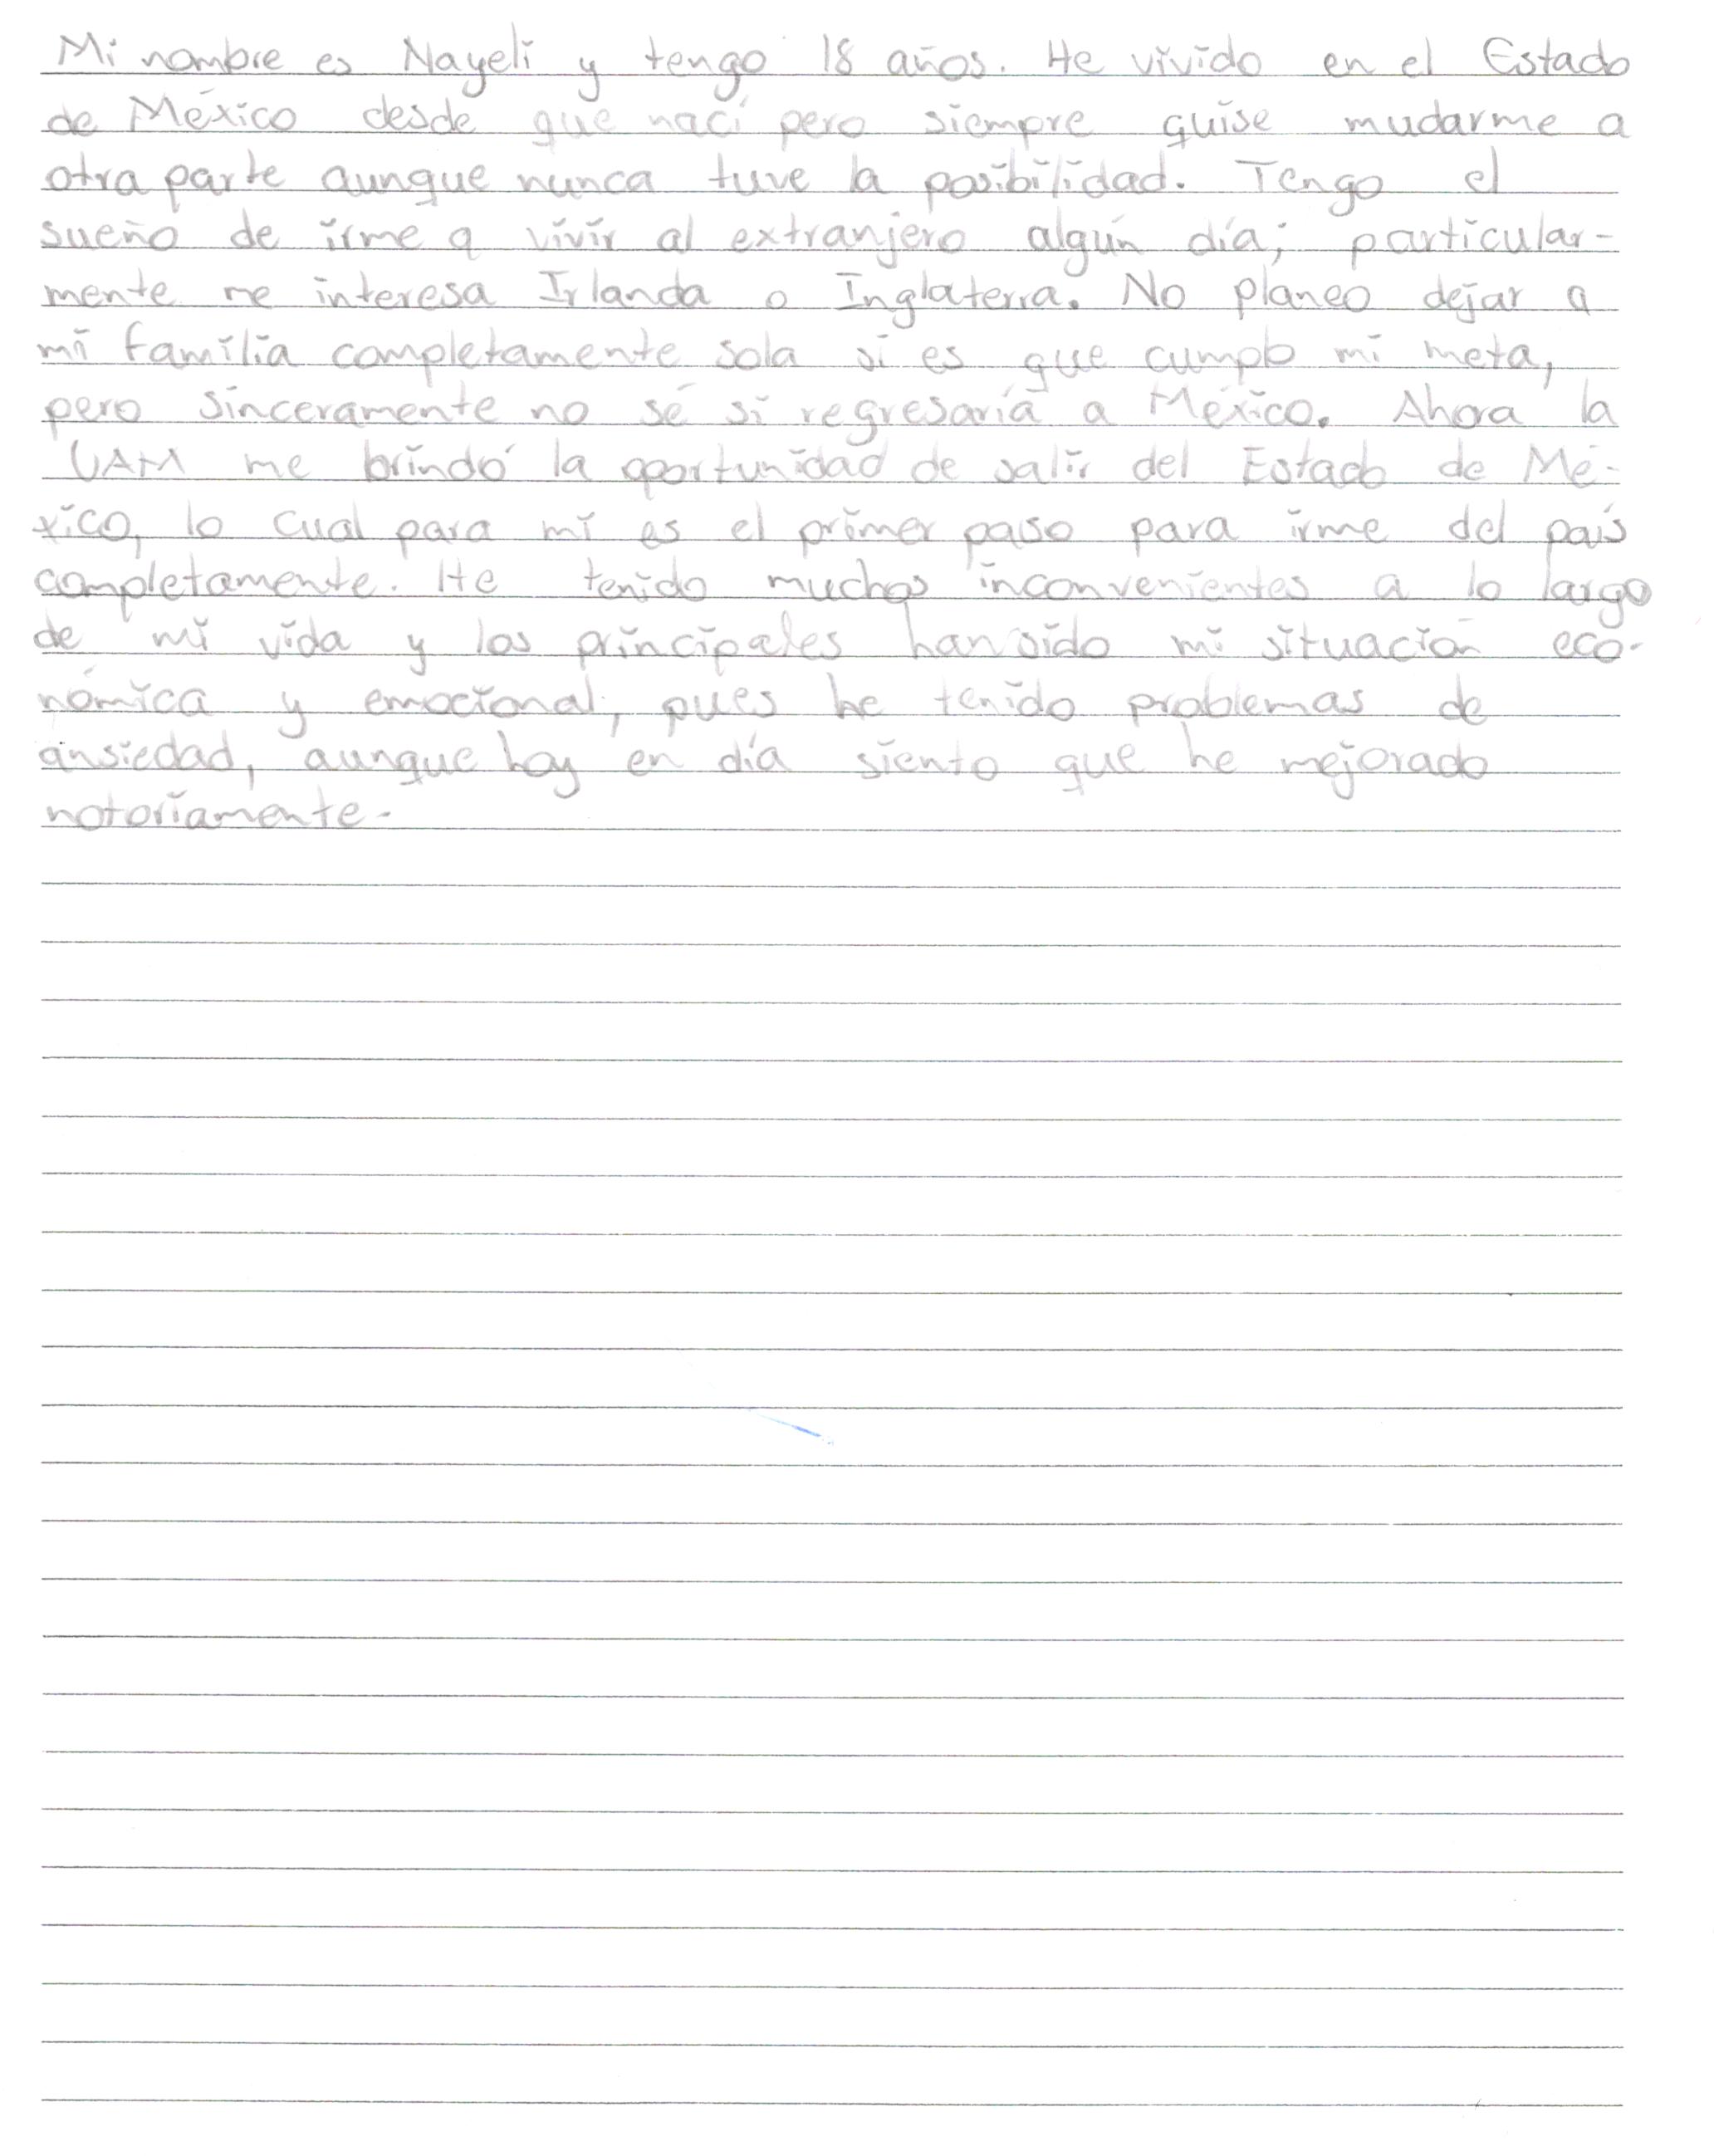 Mi nombre es Nayeli y tengo 18 años. He vivido en el Estado
de México desde que nací pero siempre quise mudarme a
otra parte aunque nunca tuve la posibilidad. Tengo el
sueño de irme a vivir al extranjero algún día; particular-
mente me interesa Irlanda o Inglaterra. No planeo dejar a
mi familia completamente sola si es que cumplo mi meta,
pero sinceramente no sé si regresaría a México. Ahora la
UAM me brindó la oportunidad de salir del Estado de Mé-
xico, lo cual para mí es el primer paso para irme del país
completamente. He tenido muchos inconvenientes a lo largo
de mi vida y los principales han sido mi situación eco-
nómica y emocional, pues he tenido problemas de
ansiedad, aunque hoy en día siento que he mejorado
notoriamente.